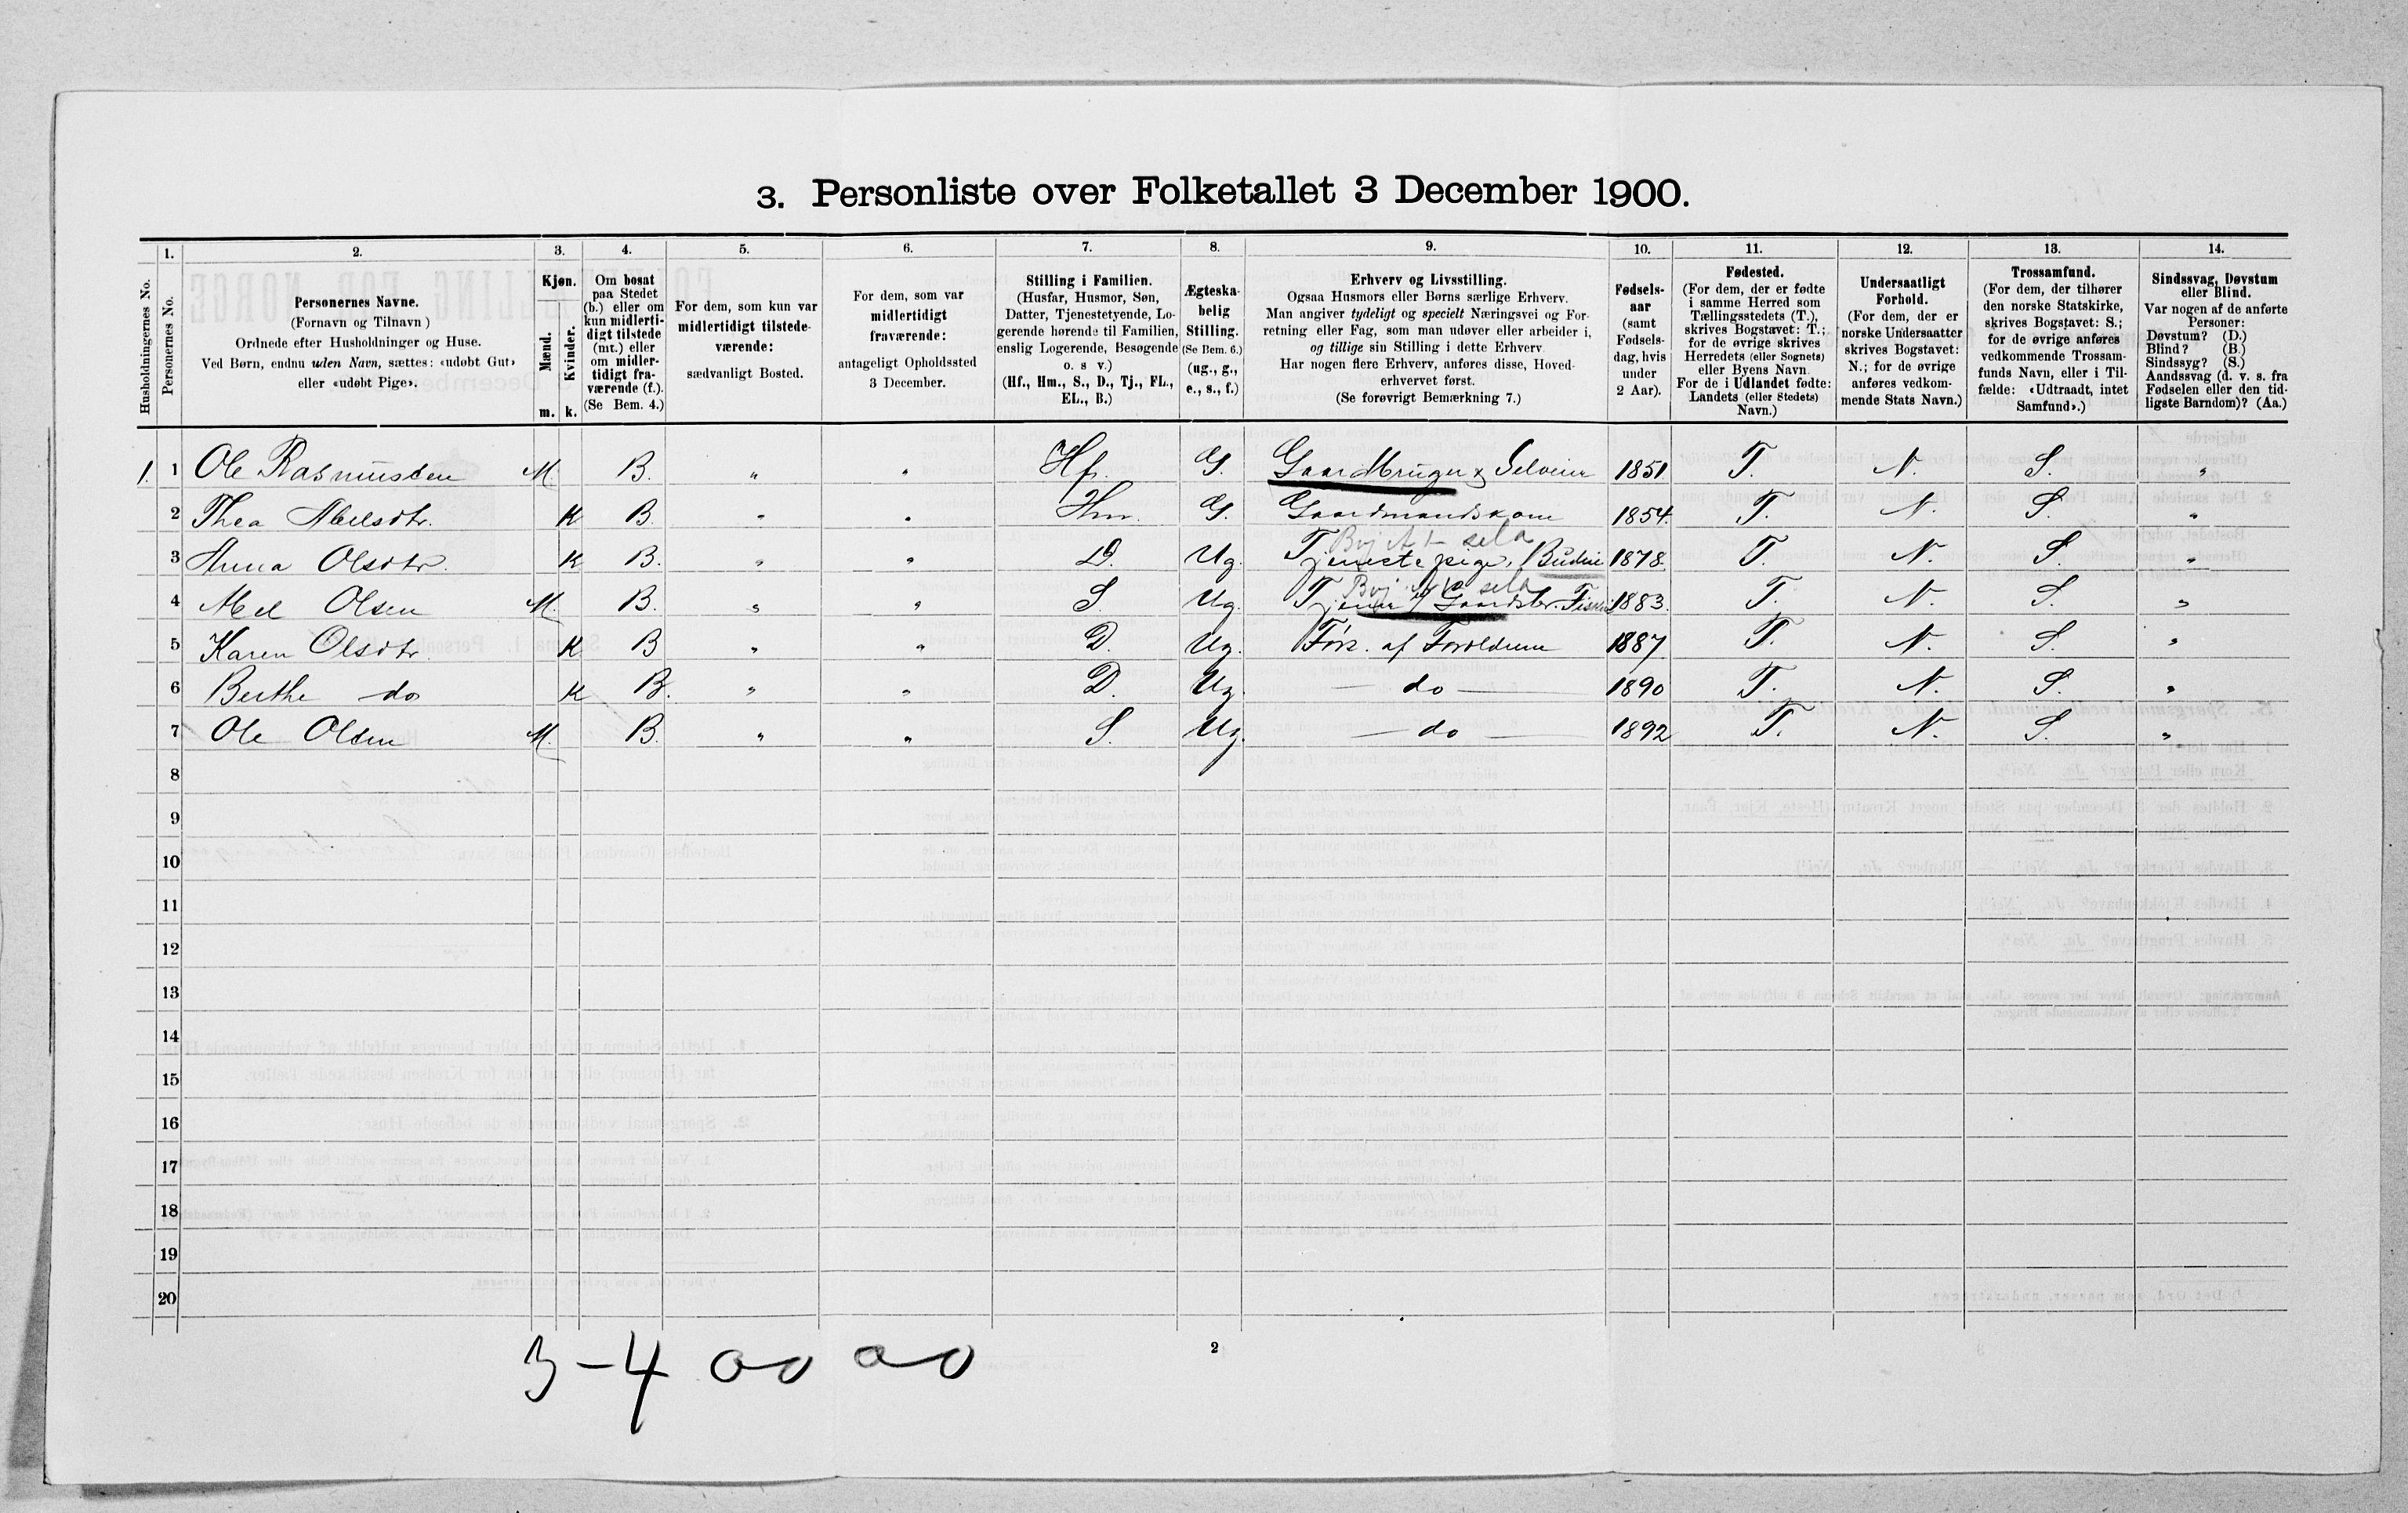 3. Personliste over Folketallet 3 December 1900.
1. 2. 3. 4. 5. 6. 7. 8. 9. 10. 11. 12. 13. 14.
Husholdningernes No.
Personernes No.
Personernes Navne.
(Fornavn og Tilnavn )
Ordnede efter Husholdninger og Huse.
Ved Børn, endnu uden Navn, sættes: «udøbt Gut»
eller «udøbt Pige».
Kjøn.
Mænd.
Kvinder.
m. k.
Om bosat
paa Stedet
(b.) eller om
kun midlerti-
digt tilstede
(mt.) eller
om midler-
tidigt fra-
værende (f.).
(Se Bem. 4.)
For dem, som kun var
midlertidigt tilstede-
værende:
sædvanligt Bosted.
For dem, som var
midlertidigt
fraværende:
antageligt Opholdssted
3 December.
Stilling i Familien.
(Husfar, Husmor, Søn,
Datter, Tjenestetyende, Lo-
gerende hørende til Familien,
enslig Logerende, Besøgende
o. s v.)
(Hf., Hm., S., D., Tj., FL.,
EL., B.)
Ægteska-
belig
Stilling.
(Se Bem. 6.)
(ug., g.,
e., s., f.)
Erhverv og Livsstilling.
Ogsaa Husmors eller Børns særlige Erhverv.
Man angiver tydeligt og specielt Næringsvei og For-
retning eller Fag, som man udøver eller arbeider i,
og tillige sin Stilling i dette Erhverv.
Har nogen flere Erhverv, anføres disse, Hoved-
erhvervet først.
(Se forøvrigt Bemærkning 7.)
Fødsels-
aar
(samt
Fødsels-
dag, hvis
under
2 Aar).
Fødested.
(For dem, der er fødte
i samme Herred som
Tællingsstedets (T.),
skrives Bogstavet: T.;
for de øvrige skrives
Herredets (eller Sognets)
eller Byens Navn.
For de i Udlandet fødte:
Landets (eller Stedets)
Navn.)
Undersaatligt
Forhold.
(For dem, der er
norske Undersaatter
skrives Bogstavet:
N.; for de øvrige
anføres vedkom-
mende Stats Navn.)
Trossamfund.
(For dem, der tilhører
den norske Statskirke,
skrives Bogstavet: S.;
for de øvrige anføres
vedkommende Trossam-
funds Navn, eller i Til-
fælde: «Udtraadt, intet
Samfund».)
Sindssvag, Døvstum
eller Blind.
Var nogen af de anførte
Personer:
Døvstum? (D.)
Blind? (B.)
Sindssyg? (S.)
Aandssvag (d. v. s. fra
Fødselen eller den tid-
ligste Barndom)? (Aa.)
1. 1 Ole Rasmussen M. B. " " Hf. G. Gaardbruger & Selveier 1851 T. N. S. "
2 Thea Abelsdtr. K B. " " Hm. G. Gaardmandskone 1854. T. N. S. "
3 Anna Olsdtr. K B. " " D. Ug. Tjenestepige, Budeie 1878. T. N. S. "
4 Abel Olsen M. B. " " S Ug. Gaardsbr. 1883. T. N. S. "
5 Karen Olsdtr. K B " " D. Ug. Fors. af Forældrene 1887 T. N. S. "
6 Berthe do K B. " " D. Ug. — do — 1890 T. N. S. "
7 Ole Olsen M. B. " " S. Ug. — do — 1892 T. N. S. "
8
9
10
11
12
13
14
15
16
17
18
19
20
2
3 - 4 00 00